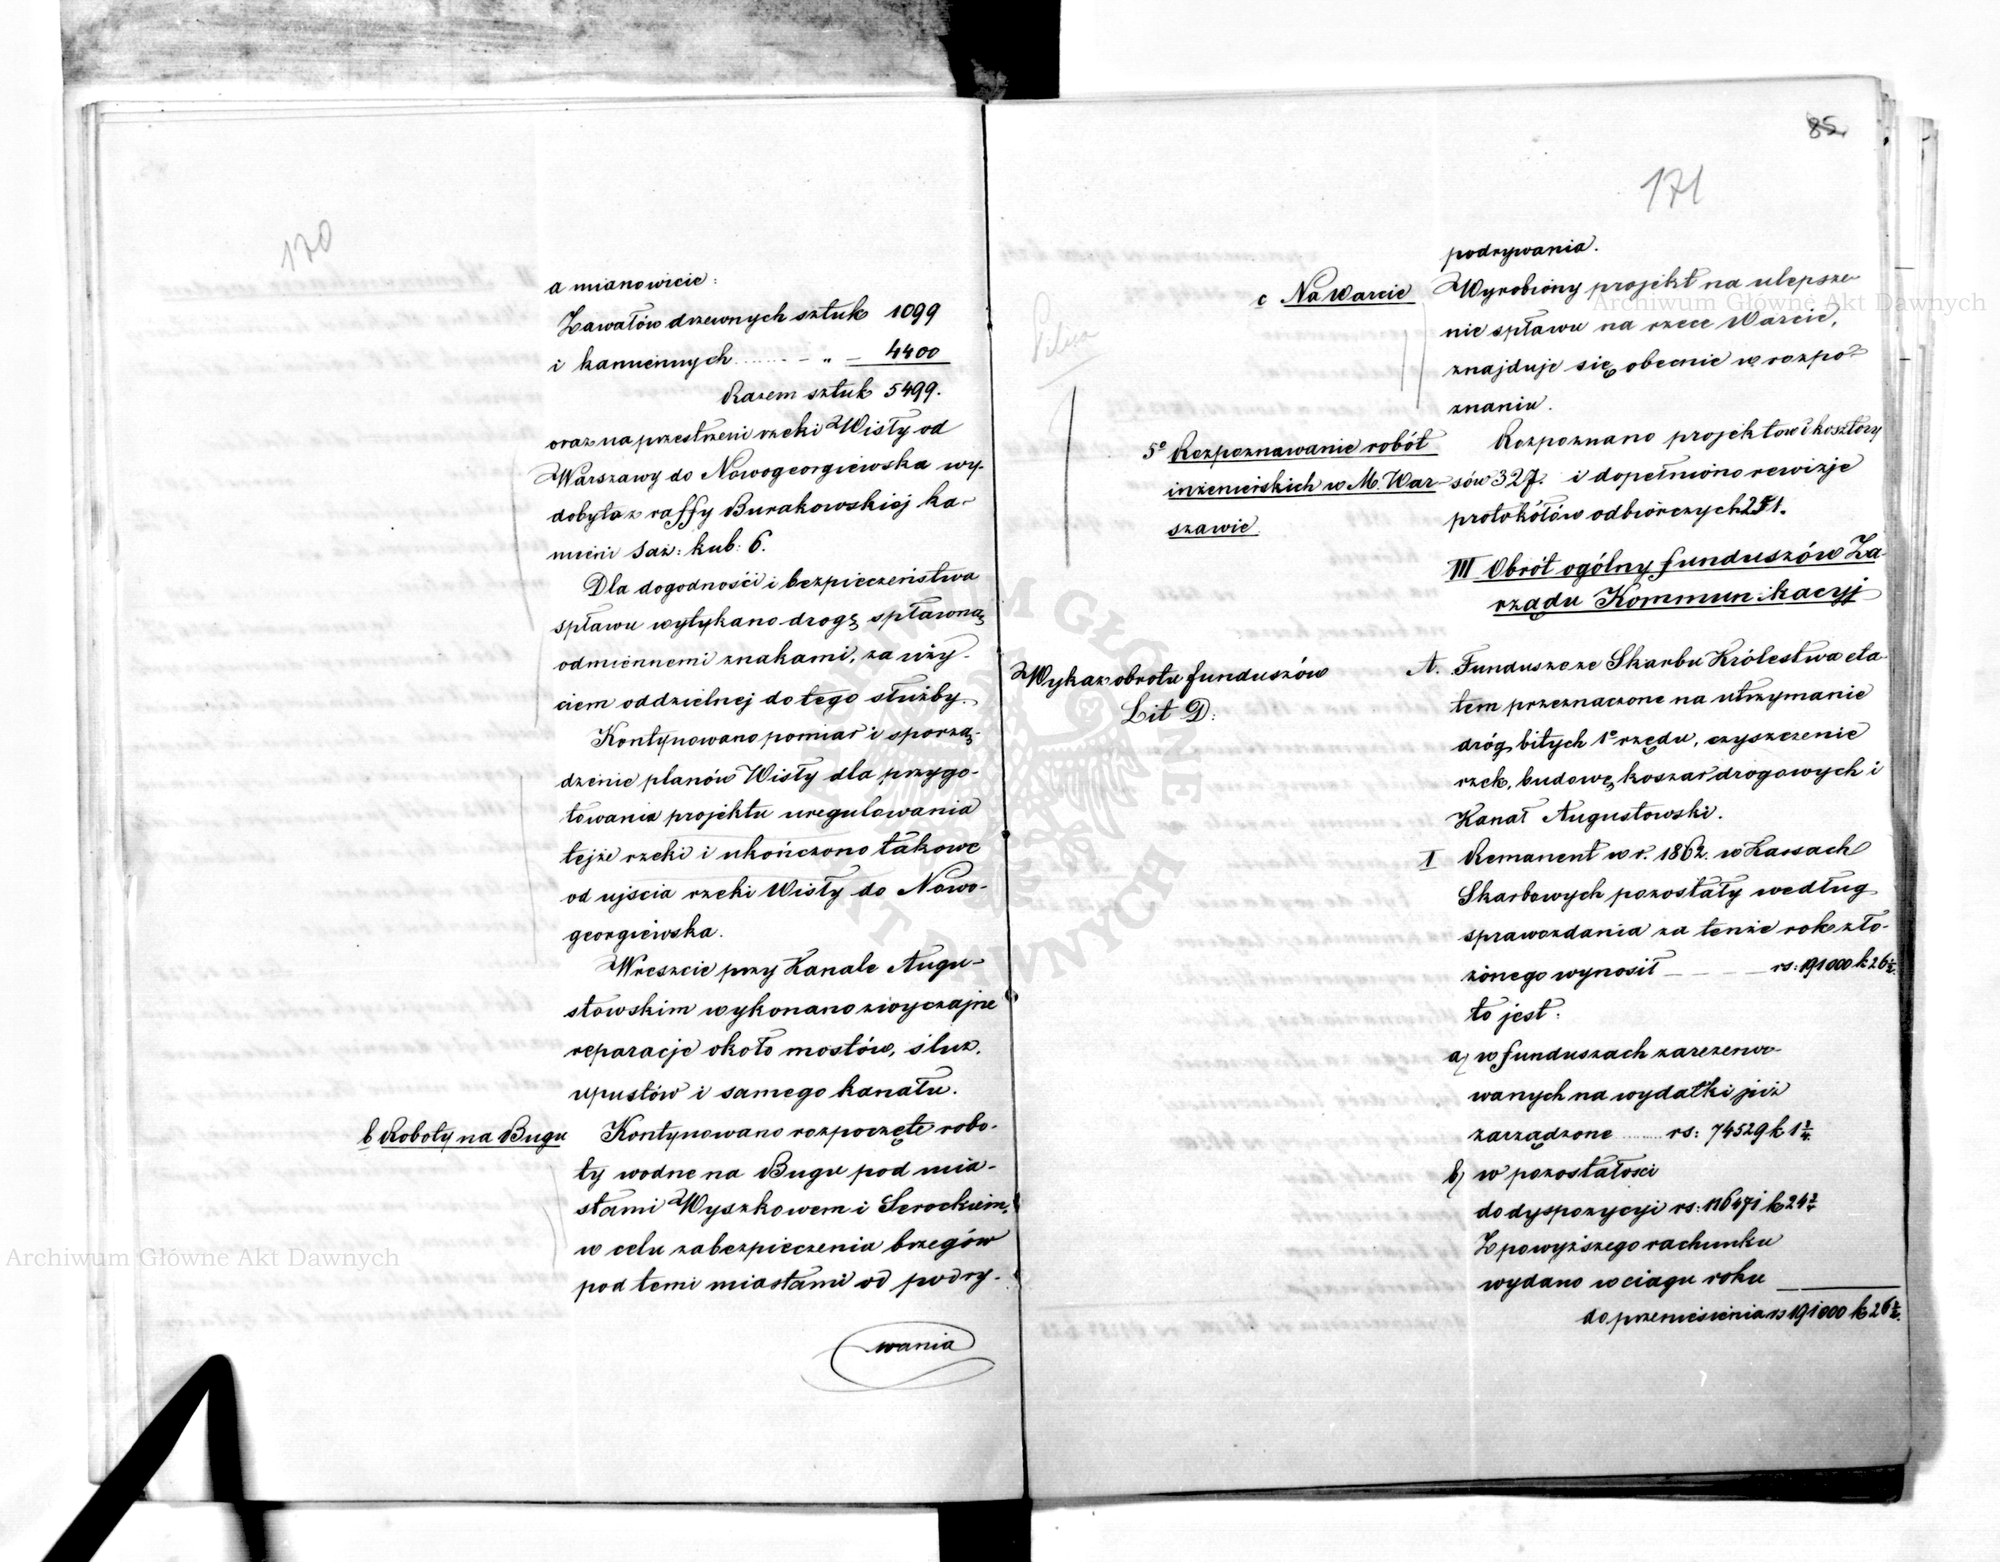 170
a mianowicie:
Zawałów drzewnych sztuk 1099
i kamiennych „ 4400
Razem sztuk 5499.
oraz na przestrzeni rzeki Wisły od
Warszawy do Nowogeorgiewska wy-
dobyto z raffy Burakowskiej ka-
mieni Saż: kub: 6.
Dla dogodności i bezpieczeństwa
spławu wytykano drogę spławną
odmiennemi znakami, za uży-
ciem oddzielnej do tego służby.
Kontynowano pomiar i sporzą-
dzenie planów Wisły dla przygo-
towania projektu uregulowania
tejże rzeki i ukończono takowe
od ujścia rzeki Wisły do Nowo-
georgiewska.
Wreszcie przy Kanale Augu-
stowskim wykonano zwyczajne
reparacje około mostów, śluz,
upustów i samego kanału.
b Roboty na Bugu
Kontynowano rozpoczęte robo-
ty wodne na Bugu pod mia-
stami Wyszkowem i Serockiem,
w celu zabezpieczenia brzegów
pod temi miastami od podry-
wania
85
171
podrywania.
c Na Warcie
Wyrobiony projekt na ulepsze-
nie spławu na rzece Warcie,
znajduje się obecnie w rozpo-
znaniu.
Pilica
5º Rozpoznawanie robót
inżenierskich w M. War-
szawie
Rozpoznano projektów i kosztory
sów 327. i dopełniono rewizje
protokółów odbiorczych
III Obrót ogólny funduszów Za-
rządu Kommunikacyj
Wykaz obrotu funduszów
Lit D:
A. Fundusze ze Skarbu Królestwa eta-
tem przeznaczone na utrzymanie
dróg bitych 1º rzędu, czyszczenie
rzek, budowę koszar drogowych i
Kanał Augustowski.
I Remanent w r. 1862. w Kassach
Skarbowych pozostały według
sprawozdania za tenże rok zło-
żonego wynosił rs: 191000 k 26½
to jest:
a) w funduszach zarezerwo-
wanych na wydatki już
zarządzone rs: 74529 k 1¾
b) w pozostałości
do dyspozycyi rs: 116471 k 24¾
Z powyższego rachunku
wydano w ciągu roku
do przeniesienia rs 191000 k 26½
Archiwum Główne Akt Dawnych
Archiwum Główne Akt Dawnych
ARCHIWUM GŁÓWNE AKT DAWNYCH